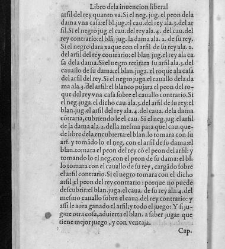 Libro de la inuencion liberal
arfil del rey quanto va. Si el neg. jug. el peon de la
dama vna casa: el bl. jug. el cau. del rey a la 5. del ar
fil. Si el negro jug. el cau. del rey a la 4. del cau. del
rey contrario: el bl. jug. la dama a la 2. de su rey.
Si el negro dara xaque con el arfil de su rey a la
del rey contrario: el bl. jug. el arfil del rey a la ca
sa de la dama. Si el negro retira su arfil a la 2. del
cauallo de su dama: el blan. jugue el roque a la casa
del arfil de su rey. Si el negro jugara el cauallo de la
ala 3. del arfil: el blanco pujara el peon del ro-
que del rey vna casa sobre el cauallo contrario. Si
el neg. juga el dicho cau. a la 3. del arfil del rey: el
blan. jug. el cau. del rey a la 4. del cau. de la dama
contraria, cubriendole el cau. Si el neg. jug. el arfil
de la dama a la 2. della mesma para que el cau. que
de libre de la encubierta: el blan. lo tomara con su
arf. y tomãdo lo el neg. con el arfil de su dama: el
blan. tomara el peon del rey cõ el peon del arfil: y
tomando lo el neg. con el peon de su dama: el bl.
lo tomara con el cauallo de su rey, cargãdo sobre
el arfil contrario: Si el negro tomare con el dicho
arfil el peon del rey contrario: porque no puede
descubrirse: el blan. jug. el cau. de su rey a la 4. del
mesmo cauallo sobre el cau. del rey contrario: y
assi le aura ganado el arfil, y todo el juego. Y si ju-
gue otra cosa, aduierta el blan. a saber jugar que
tiene mejor juego, y con ventaja.
Cap.